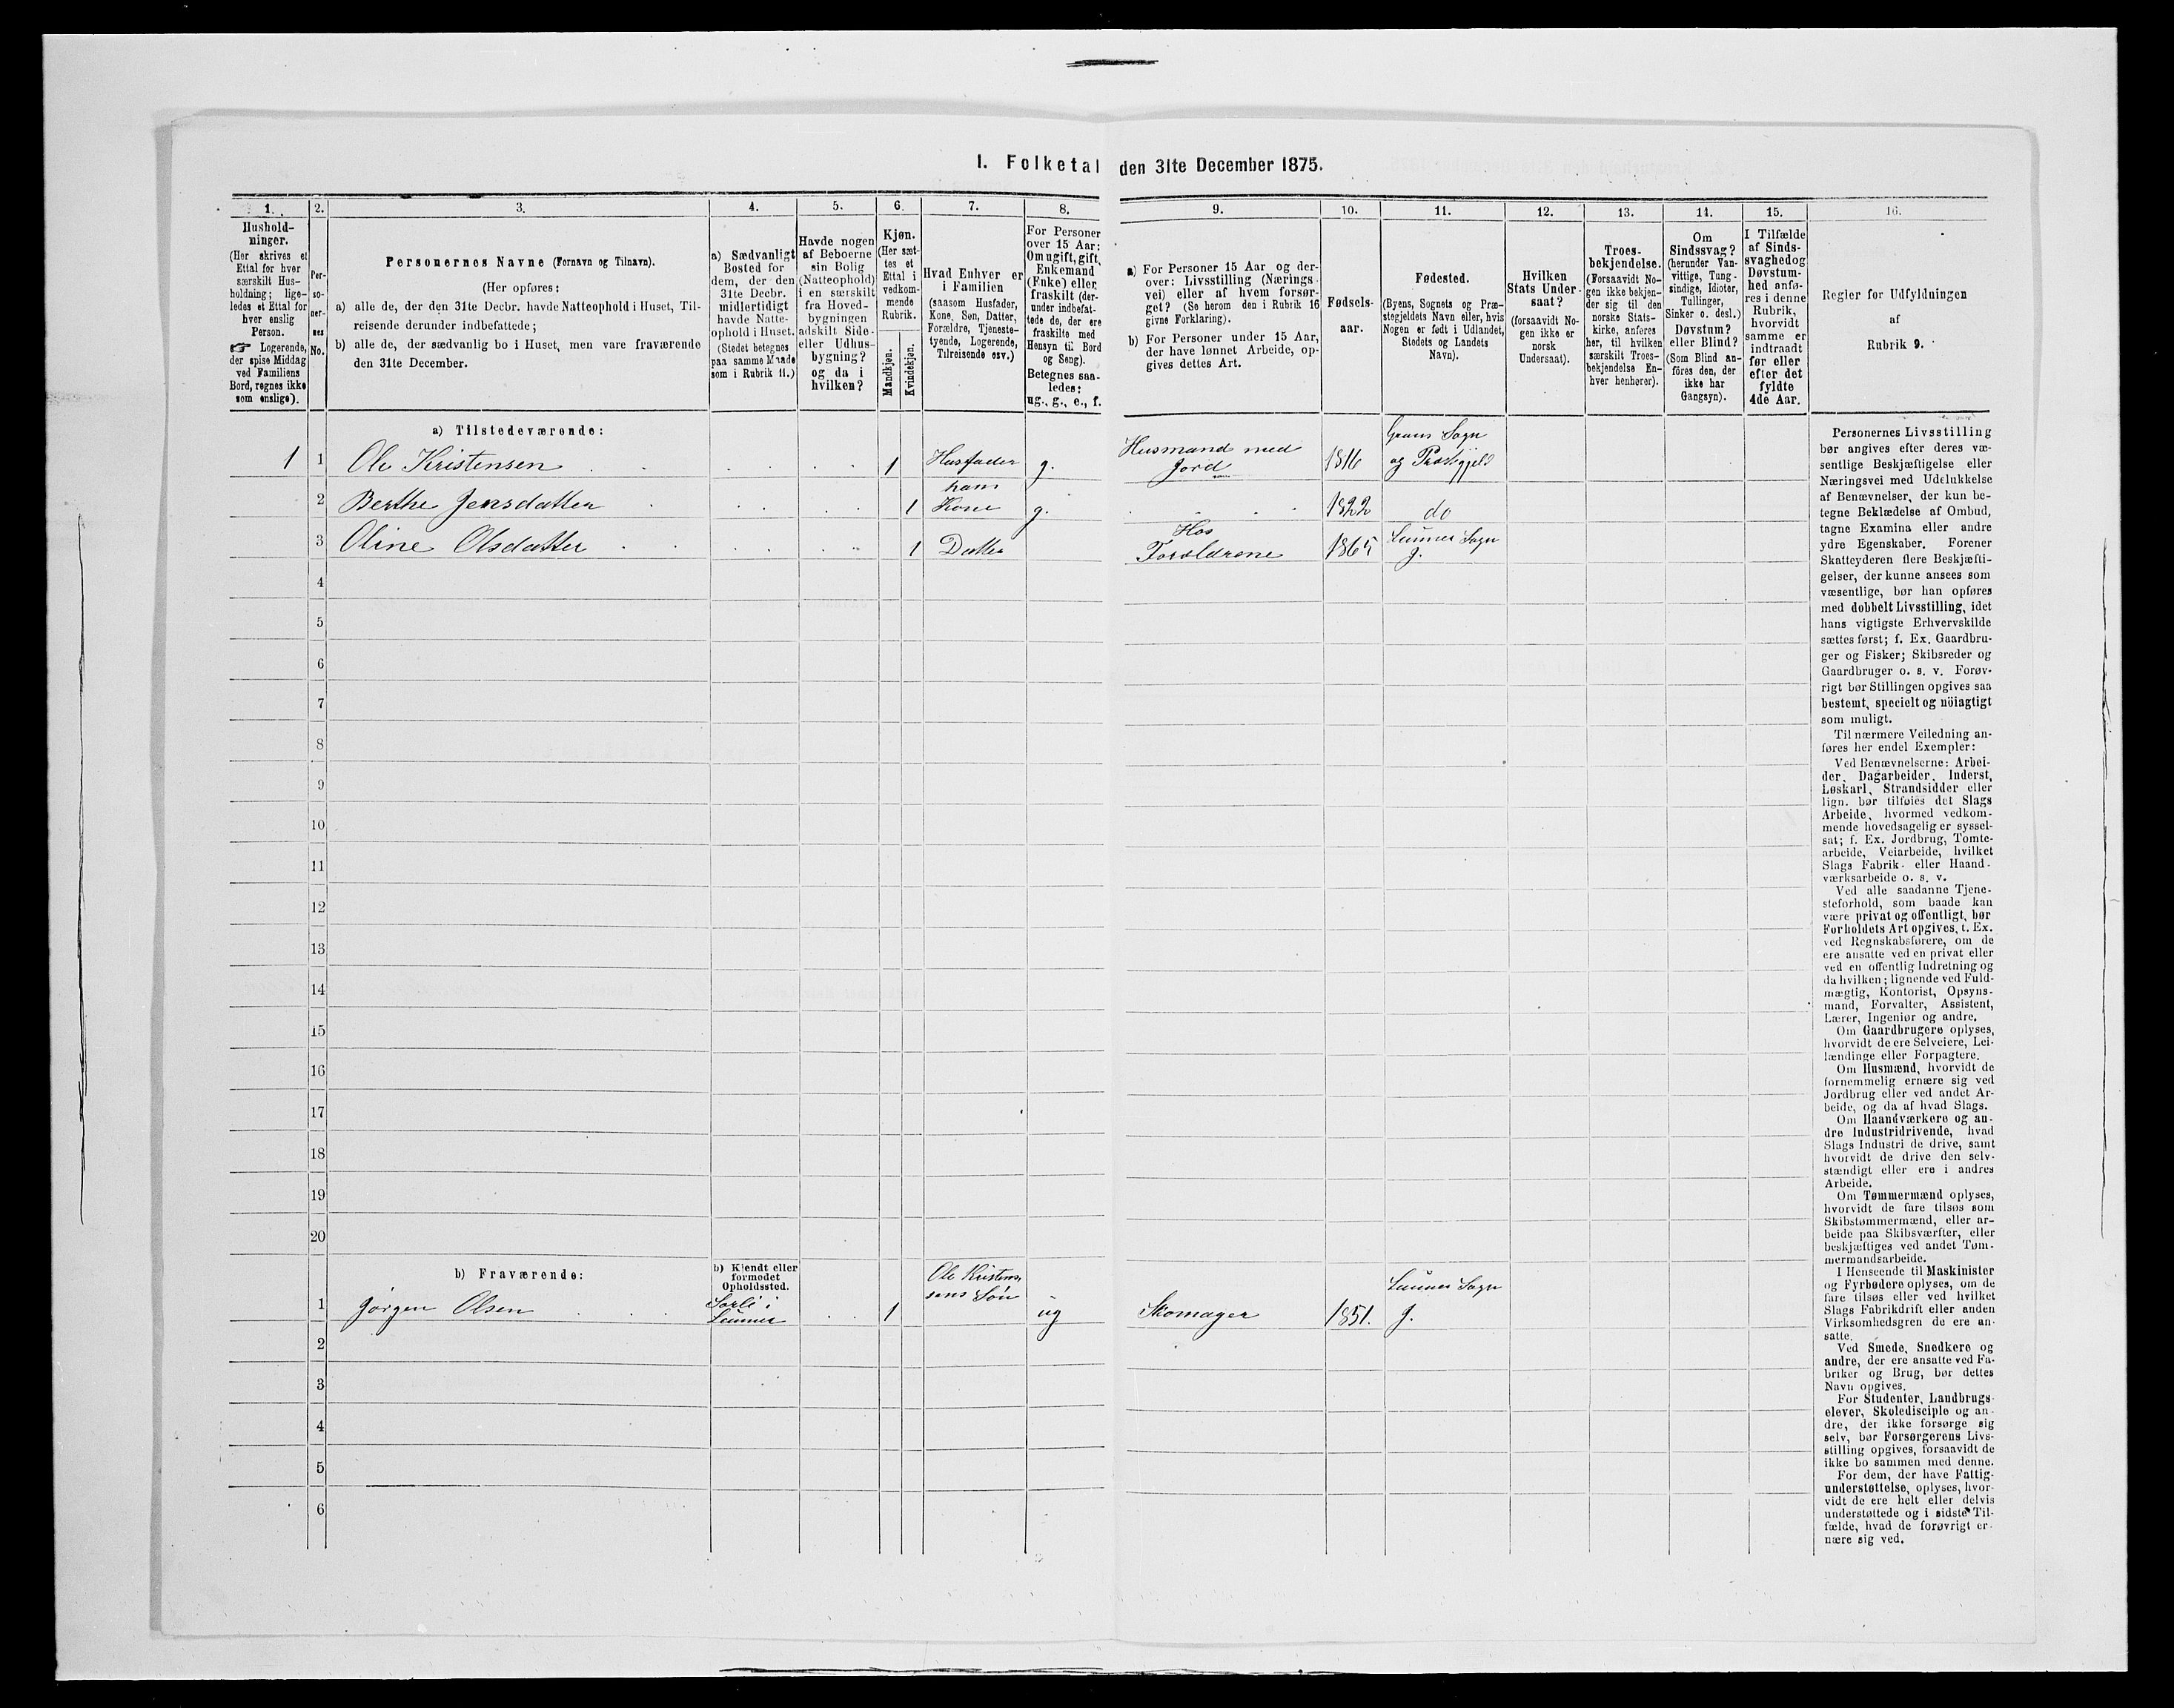 I. Folketal den 31te December 1875.
1.
Hushold-
ninger.
(Her skrives et
Ettal for hver
særskilt Hus-
holdning; lige-
ledes et Ettal for
hver enslig
Person.
☞ Logerende,
der spise Middag
ved Familiens
Bord, regnes ikke
som enslige).
2.
Per-
so-
ner-
nes
No.
3.
Personernes Navne (Fornavn og Tilnavn).
(Her opføres:
a) alle de, der den 31te Decbr. havde Natteophold i Huset, Til-
reisende derunder indbefattede;
b) alle de, der sædvanlig bo i Huset, men vare fraværende
den 31te December.
4.
a) Sædvanligt
Bosted for
dem, der den
31te Decbr.
midlertidigt
havde Natte-
ophold i Huset.
(Stedet betegnes
paa samme Maade
som i Rubrik 11.)
5.
Havde nogen
af Beboerne
sin Bolig
(Natteophold)
i en særskilt
fra Hoved-
bygningen
adskilt Side-
eller Udhus-
bygning?
og da i
hvilken?
6.
Kjøn.
(Her sæt-
tes et
Ettal i
vedkom-
mende
Rubrik.
Mandkjøn.
Kvindekjøn.
7.
Hvad Enhver er
i Familien
(saasom Husfader,
Kone, Søn, Datter,
Forældre, Tjeneste-
tyende, Logerende,
Tilreisende osv.)
8.
For Personer
over 15 Aar:
Om ugift, gift,
Enkemand
(Enke) eller
fraskilt (der-
under indbefat-
tede de, der ere
fraskilte med
Hensyn til Bord
og Seng).
Betegnes saa-
ledes:
ug., g., e., f.
9.
a) For Personer 15 Aar og der-
over: Livsstilling (Nærings-
vei) eller af hvem forsør-
get? (Se herom den i Rubrik 16
givne Forklaring).
b) For Personer under 15 Aar,
der have lønnet Arbeide, op-
gives dettes Art.
10.
Fødsels-
aar.
11.
Fødested.
(Byens, Sognets og Præ-
stegjeldets Navn eller, hvis
Nogen er født i Udlandet,
Stedets og Landets
Navn).
12.
Hvilken
Stats Under-
saat?
(forsaavidt No-
gen ikke er
norsk
Undersaat).
13.
Troes-
bekjendelse.
(Forsaavidt No-
gen ikke bekjen-
der sig til den
norske Stats-
kirke, anføres
her, til hvilken
særskilt Troes-
bekjendelse En-
hver henhører).
14.
Om
Sindssvag?
(herunder Van-
vittige, Tung-
sindige, Idioter,
Tullinger,
Sinker o. desl.)
Døvstum?
eller Blind?
(Som Blind an-
føres den, der
ikke har
Gangsyn).
15.
I Tilfælde
af Sinds-
svaghed og
Døvstum-
hed anfø-
res i denne
Rubrik,
hvorvidt
samme er
indtraadt
før eller
efter det
fyldte
4de Aar.
16.
Regler for Udfyldningen
af
Rubrik 9.
a) Tilstedeværende:
1 1 Ole Kristensen 1 Husfader g. Husmand med Jord 1816 Grans Sogn og Præstegjeld
2 Berthe Jensdatter 1 hans Kone g. 1822 do
3 Oline Olsdatter 1 Datter Hos Forældrene 1865 Lunner Sogn G.
4
5
6
7
8
9
10
11
12
13
14
15
16
17
18
19
20
b) Fraværende:
b) Kjendt eller
formodet
Opholdssted.
1 Jørgen Olsen Sorli i Lunner 1 Ole Kristensens Søn ug Skomager 1851. Lunner Sogn G.
2
3
4
5
6
Personernes Livsstilling
bør angives efter deres væ-
sentlige Beskjæftigelse eller
Næringsvei med Udelukkelse
af Benævnelser, der kun be-
tegne Beklædelse af Ombud,
tagne Examina eller andre
ydre Egenskaber. Forener
Skatteyderen flere Beskjæfti-
gelser, der kunne ansees som
væsentlige, bør han opføres
med dobbelt Livsstilling, idet
hans vigtigste Erhvervskilde
sættes først; f. Ex. Gaardbru-
ger og Fisker; Skibsreder og
Gaardbruger o. s. v. Forøv-
rigt bør Stillingen opgives saa
bestemt, specielt og nöiagtigt
som muligt.
Til nærmere Veiledning an-
føres her endel Exempler:
Ved Benævnelserne: Arbei-
der, Dagarbeider, Inderst,
Løskarl, Strandsidder eller
lign. bør tilføies det Slags
Arbeide, hvormed vedkom-
mende hovedsagelig er syssel-
sat; f. Ex. Jordbrug, Tomte-
arbeide, Veiarbeide, hvilket
Slags Fabrik- eller Haand-
værksarbeide o. s. v.
Ved alle saadanne Tjene-
steforhold, som baade kan
være privat og offentligt, bør
Forholdets Art opgives, t. Ex.
ved Regnskabsførere, om de
ere ansatte ved en privat eller
ved en offentlig Indretning og
da hvilken; lignende ved Fuld-
mægtig, Kontorist, Opsyns-
mand, Forvalter, Assistent,
Lærer, Ingeniør og andre.
Om Gaardbrugere oplyses,
hvorvidt de ere Selveiere, Lei-
lændinge eller Forpagtere.
Om Husmænd, hvorvidt de
fornemmelig ernære sig ved
Jordbrug eller ved andet Ar-
beide, og da af hvad Slags.
Om Haandværkere og an-
dre Industridrivende, hvad
Slags Industri de drive, samt
hvorvidt de drive den selv-
stændigt eller ere i andres
Arbeide.
Om Tømmermænd oplyses,
hvorvidt de fare tilsøs som
Skibstømmermænd, eller ar-
beide paa Skibsværfter, eller
beskjæftiges ved andet Tøm-
mermandsarbeide.
I Henseende til Maskinister
og Fyrbødere oplyses, om de
fare tilsøs eller ved hvilket
Slags Fabrikdrift eller anden
Virksomhedsgren de ere an-
satte.
Ved Smede, Snedkere og
andre, der ere ansatte ved Fa-
briker og Brug, bør dettes
Navn opgives.
For Studenter, Landbrugs-
elever, Skoledisciple og an-
dre, der ikke forsørge sig
selv, bør Forsørgerens Livs-
stilling opgives, forsaavidt de
ikke bo sammen med denne.
For dem, der have Fattig-
understøttelse, oplyses, hvor-
vidt de ere helt eller delvis
understøttede og i sidste Til-
fælde, hvad de forøvrigt er-
nære sig ved.